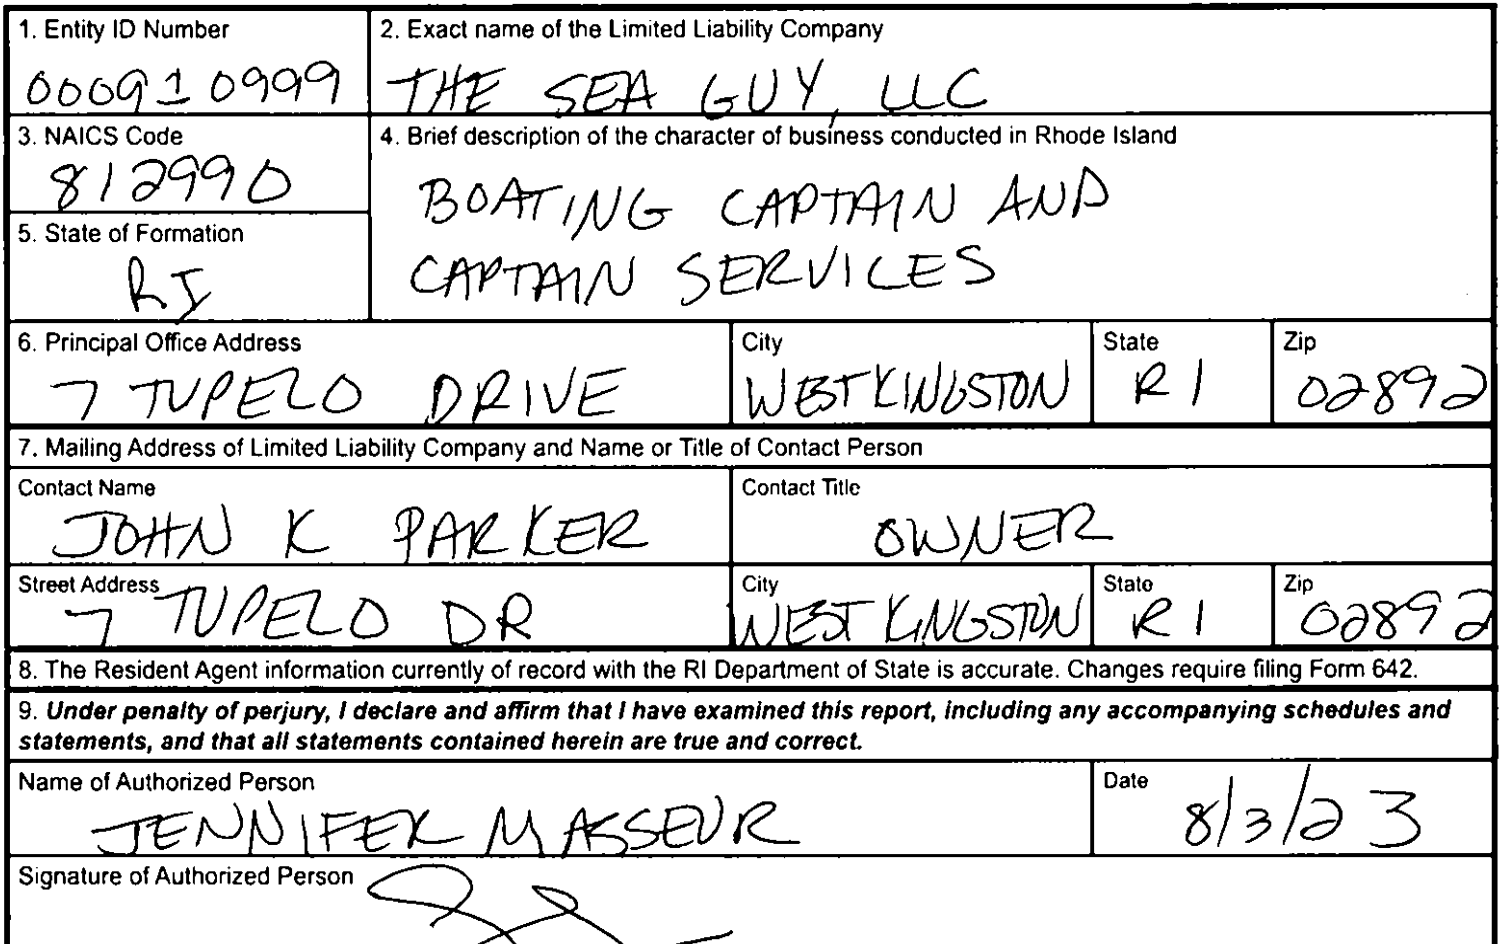 1. Entity ID Number
000910999
2. Exact name of the Limited Liability Company
THE SEA GUY, LLC
3. NAICS Code
812990
4. Brief description of the character of business conducted in Rhode Island
BOATING CAPTAIN AND
CAPTAIN SERVICES
5. State of Formation
RI
6. Principal Office Address
7 TUPELO DRIVE
City
WEST KINGSTON
State
RI
Zip
02892
7. Mailing Address of Limited Liability Company and Name or Title of Contact Person
Contact Name
JOHN K PARKER
Contact Title
OWNER
Street Address
7 TUPELO DR
City
WEST KINGSTON
State
RI
Zip
02892
8. The Resident Agent information currently of record with the RI Department of State is accurate. Changes require filing Form 642.
9. Under penalty of perjury, I declare and affirm that I have examined this report, including any accompanying schedules and
statements, and that all statements contained herein are true and correct.
Name of Authorized Person
JENNIFER MASSEUR
Date
8/3/23
Signature of Authorized Person